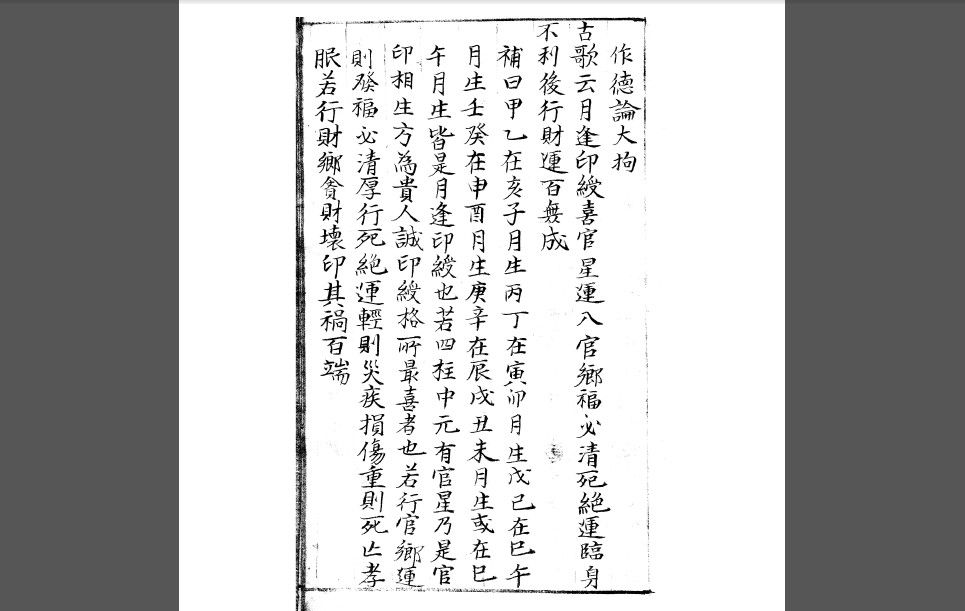 作德論大拘
古歌云月逢印綬喜官星運八官鄉福必清死絕運臨身
不利後行財運百無成
補曰甲乙在亥子月生丙丁在寅卯月生戊己在巳午
月生壬癸在申酉月生庚辛在辰戌丑未月生或在巳
午月生皆是月逢印綬也若四柱中元有官星乃是官
印相生方為貴人誠印綬格所最喜者也若行官鄉運
則發福必清厚行死絕運輕則災疾損傷重則死亡孝
眼若行財鄉貪財壞印其禍百端